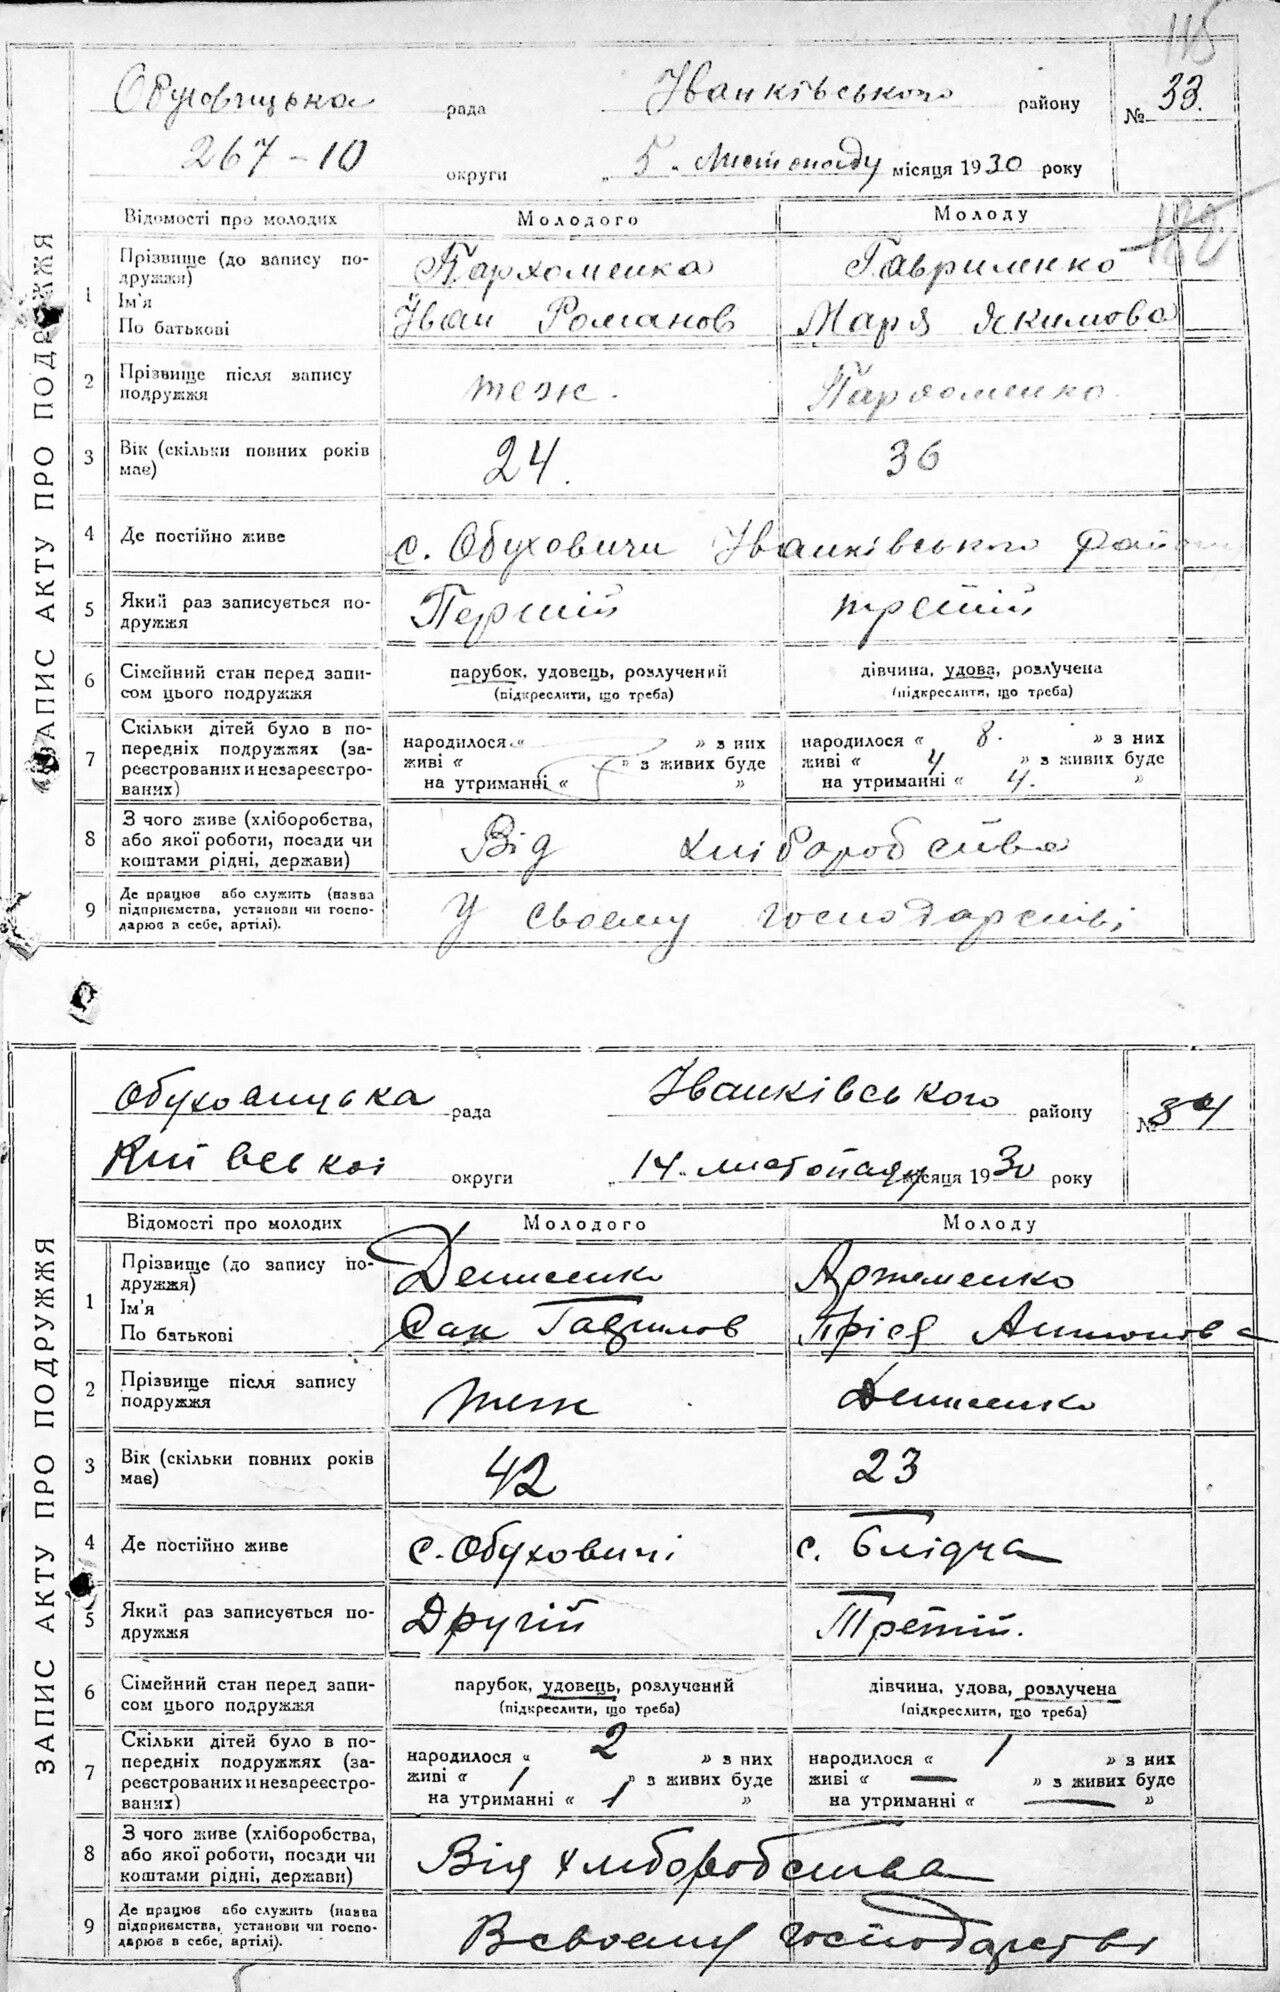 115
Обуховицька рада Іванківського району № 33.
267-10 округи „5„ Листопаду місяця 1930 року
ЗАПИС АКТУ ПРО ПОДРУЖЖЯ
Відомості про молодих Молодого Молоду
1 Прізвище (до запису по-
дружжя) Пархоменко Гавриленко
Ім'я
По батькові Іван Романов Маря Якимова
2 Прізвище після запису
подружжя теж. Пархоменко.
3 Вік (скільки повних років
має) 24. 36
4 Де постійно живе с. Обуховичи Іванківського району
5 Який раз записується по-
дружжя Першій третій
6 Сімейний стан перед запи-
сом цього подружжя
парубок, удовець, розлучений
(підкреслити, що треба)
дівчина, удова, розлучена
(підкреслити, що треба)
7 Скільки дітей було в по-
передніх подружжях (за-
реєстрованих и незареєстро-
ваних)
народилося « » з них
живі « » з живих буде
на утриманні « »
народилося « 8. » з них
живі « 4 » з живих буде
на утриманні « 4. »
8 З чого живе (хліборобства,
або якої роботи, посади чи
коштами рідні, держави) Від хліборобства
9 Де працює або служить (назва
підприємства, установи чи госпо-
дарює в себе, артілі). У своєму господарстві
Обуховицька рада Іванківського району № 34
Київскої округи „14„ листопаду місяця 1930 року
ЗАПИС АКТУ ПРО ПОДРУЖЖЯ
Відомості про молодих Молодого Молоду
1 Прізвище (до запису по-
дружжя) Денисенко Артеменко
Ім'я
По батькові Сак Гаврилов Пріся Антонова
2 Прізвище після запису
подружжя теж Денисенко
3 Вік (скільки повних років
має) 42 23
4 Де постійно живе с. Обуховичі с. Блідча
5 Який раз записується по-
дружжя Другій Третій.
6 Сімейний стан перед запи-
сом цього подружжя
парубок, удовець, розлучений
(підкреслити, що треба)
дівчина, удова, розлучена
(підкреслити, що треба)
7 Скільки дітей було в по-
передніх подружжях (за-
реєстрованих и незареєстро-
ваних)
народилося « 2 » з них
живі « 1 » з живих буде
на утриманні « 1 »
народилося « 1 » з них
живі « — » з живих буде
на утриманні « — »
8 З чого живе (хліборобства,
або якої роботи, посади чи
коштами рідні, держави) Від хліборобства
9 Де працює або служить (назва
підприємства, установи чи госпо-
дарює в себе, артілі). В своєму господарстві